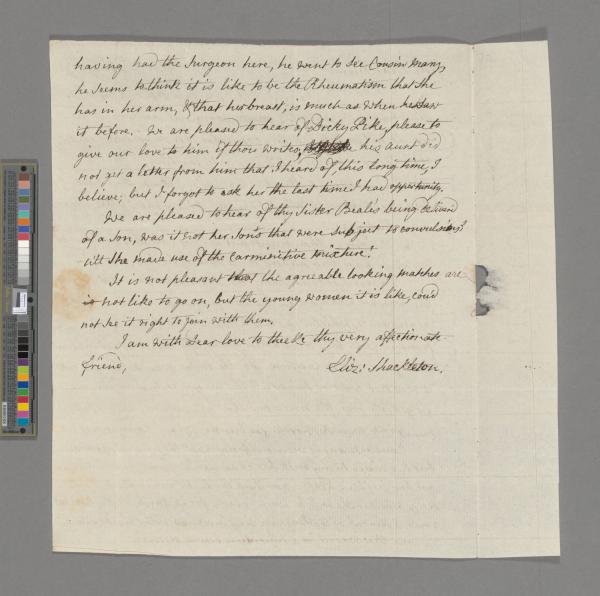 having had the Surgeon here, he went to see Cousin Mary,
he seems to think it is like to be the Rheumatism that she
has in her arm, & that her breast, is much as when he saw
it before. We are pleased to hear of Dicky Pike, please to
give our love to him if thou writes, his Aunt did
not get a letter from him that I heard of this long time, I
believe; but I forgot to ask her the last time I had opportunity.
We are pleased to hear of thy Sister Beales being deliver'd
of a son, was it not her sons that were subject to convulsions?
till she made use of the carminitive mixture!
It is not pleasant that the agreeable looking matches are
not like to go on, but the young women it is like, cou'd
not see it right to join with them.
I am with dear love to thee &c thy very affectionate
friend,
Eliz: Shackleton.